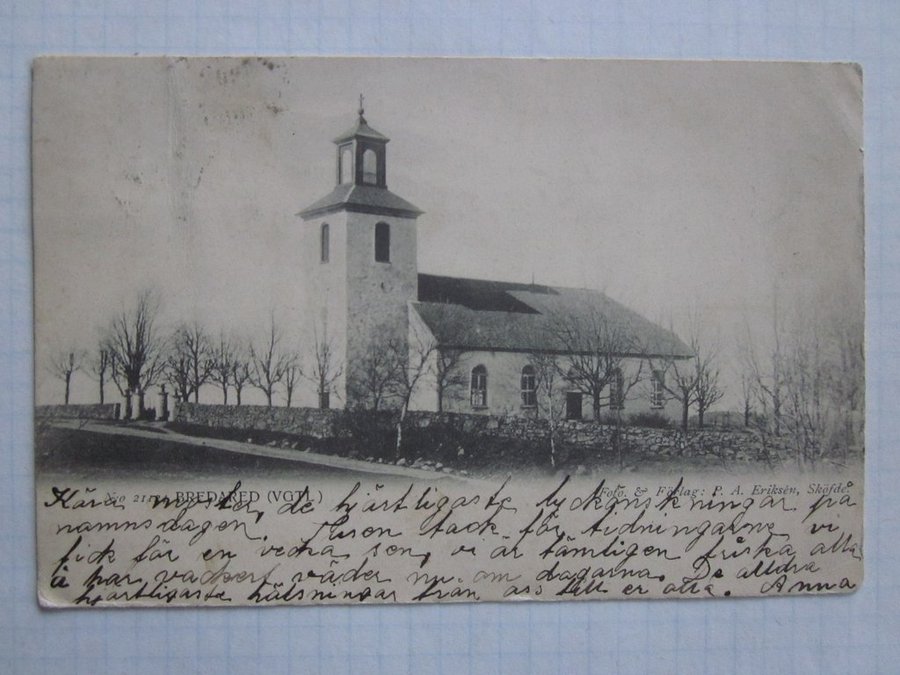 No BREDARED (VGTL.)
Foto. & Förlag: P. A. Eriksén, Sköfde.
Kära myster, de hjärtligaste lyckönskningar på
namnsdagen. Tusen tack för tidningarne vi
fick för en vecka sen, vi är tämligen friska alla
å har vackert väder nu om dagarna. De alldra
hjärtligaste hälsningar från oss till er alla. Anna